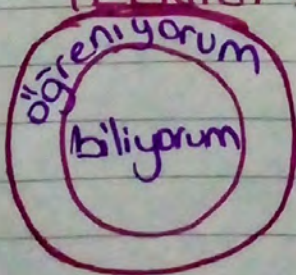 öğreniyorum
biliyorum